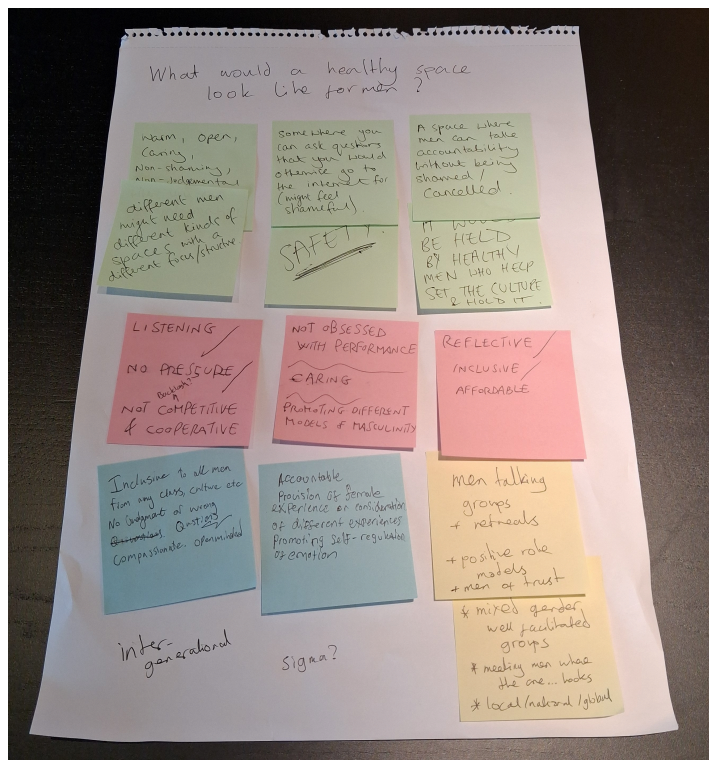 What would a healthy space
look like for men?
Warm, open,
Caring,
Non-shaming,
Non-Judgemental
different men
might need
different kinds of
spaces with a
different focus/structure
Somewhere you
can ask questions
that you would
otherwise go to
the internet for
(might feel
shameful).
SAFETY.
A space where
men can take
accountability
without being
shamed/
cancelled.
IT WOULD
BE HELD
BY HEALTHY
MEN WHO HELP
SET THE CULTURE
& HOLD IT.
LISTENING
NO PRESSURE
Backlash?
NOT COMPETITIVE
& COOPERATIVE
NOT OBSESSED
WITH PERFORMANCE
CARING
PROMOTING DIFFERENT
MODELS OF MASCULINITY
REFLECTIVE
INCLUSIVE
AFFORDABLE
Inclusive to all men
from any class, culture etc
No judgment or wrong
Questions
Compassionate - openminded
Accountable
Provision of female
experience or consideration
of different experiences
Promoting self-regulation
of emotion
men talking
groups
+ retreats
+ positive role
models
+ men of trust
* mixed gender
well facilitated
groups
* meeting men where
the are...
* local/national/global
inter-
generational
sigma?